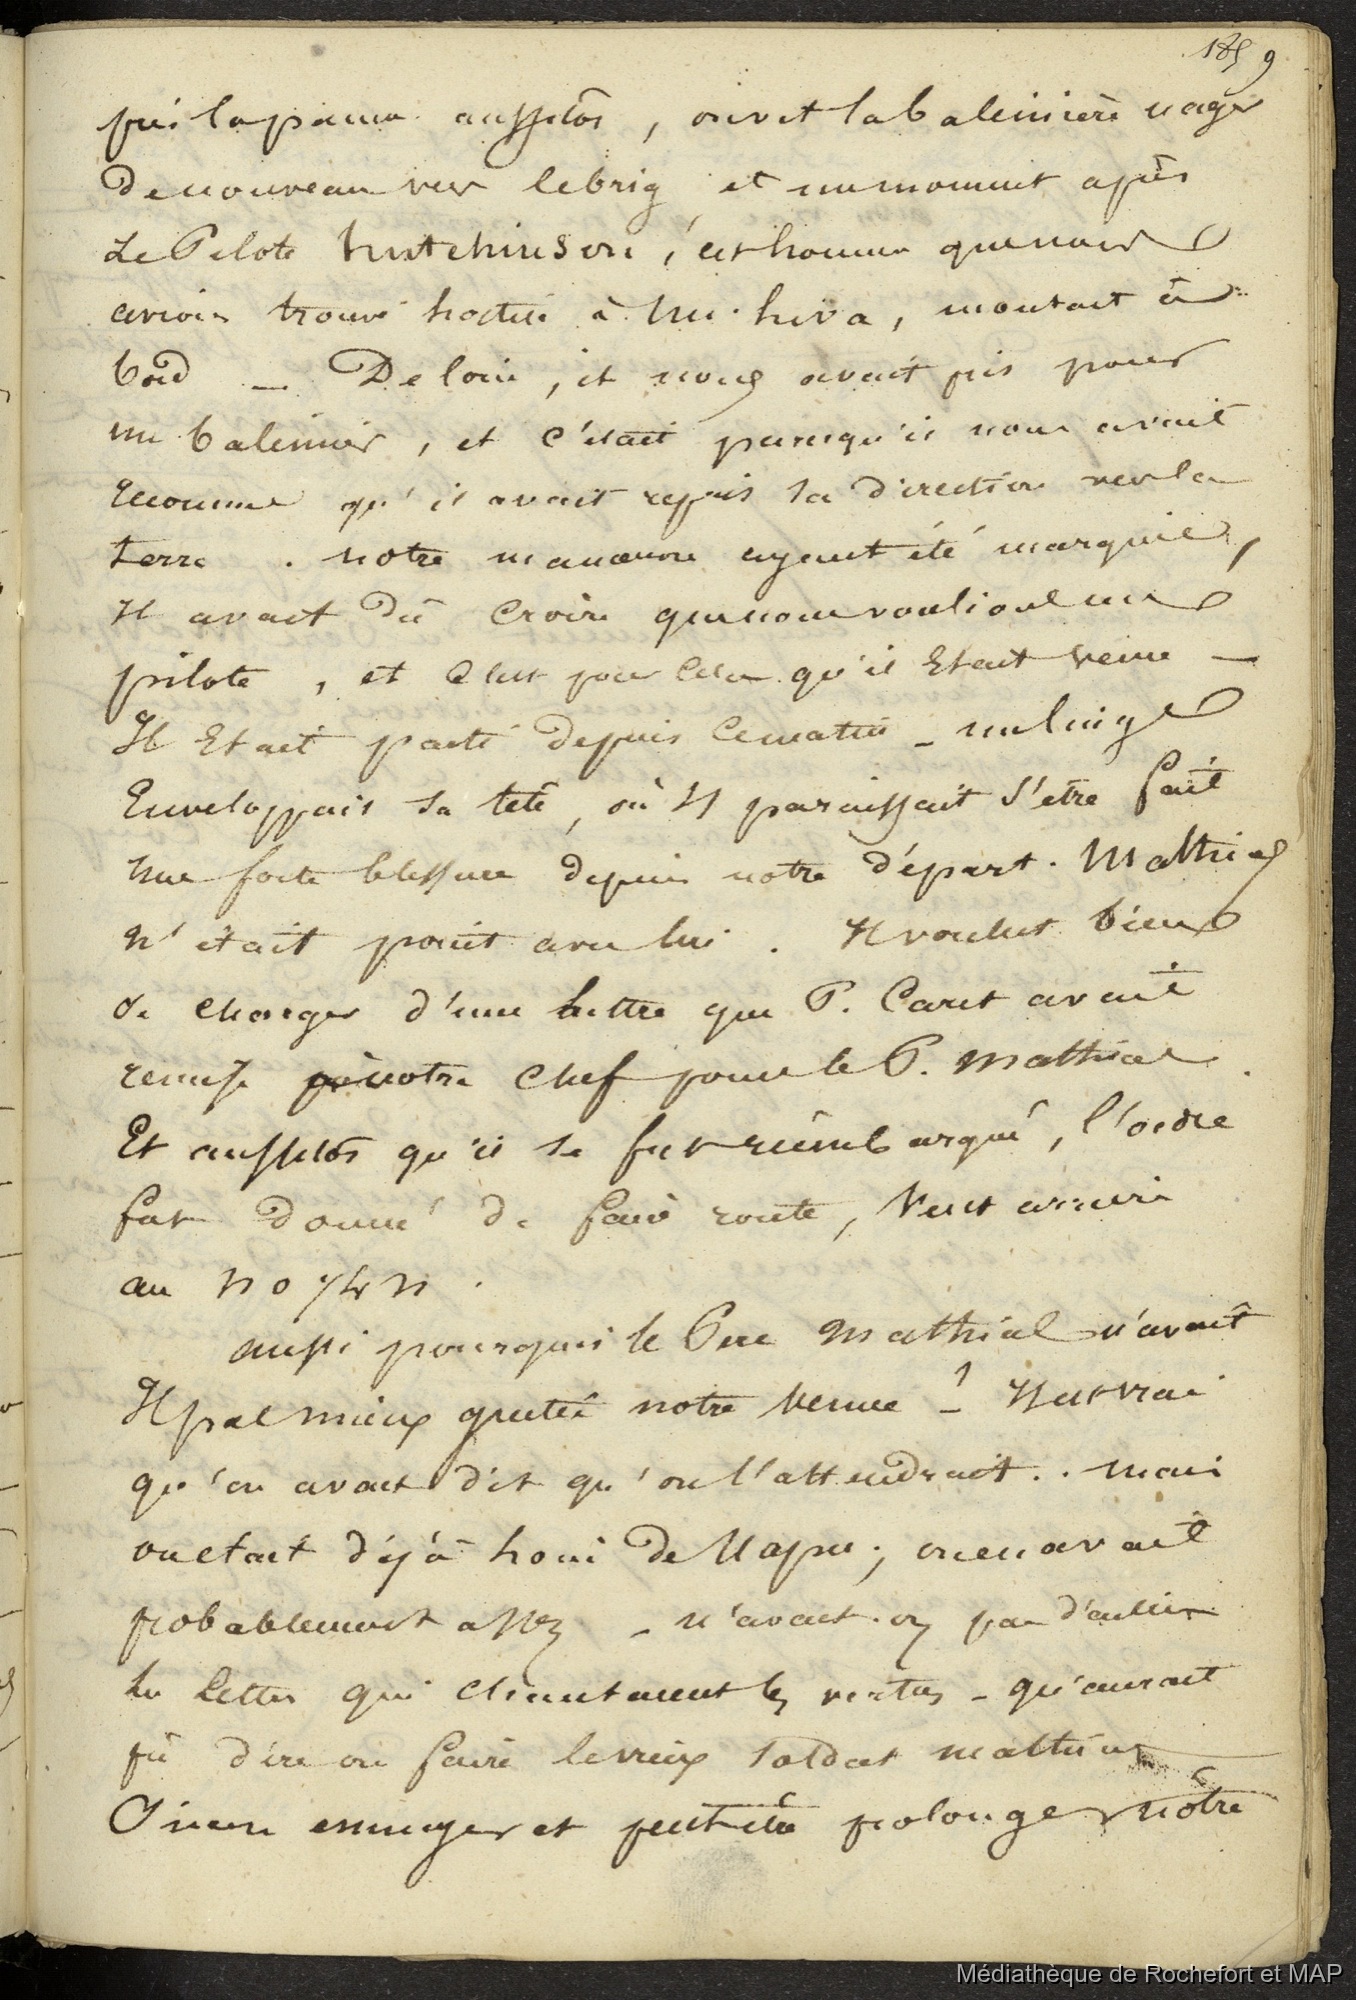 189 9
pris la panne aussitôt, on vit la baleinière nager
de nouveau vers le brig, et un moment après
Le Pilote hutchinson, cet homme que nous
avions trouvé hostile à Nu-hiva, montait à
bord — De loin, il nous avait pris pour
un baleinier, et c'était parcequ'il nous avait
reconnu qu'il avait repris sa direction vers la
terre. notre manœuvre ayant été marquée,
Il avait dû croire que nous voulions un
pilote, et c'est pour cela qu'il Etait venu —
Il Etait parti depuis ce matin — un linge
Enveloppait sa tête, où Il paraissait s'être fait
une forte blessure depuis notre départ. Mathias
n'était point avec lui. Il voulut bien
se charger d'une lettre que P. Caret avait
remise à notre chef pour le P. Mathias.
Et aussitôt qu'il se fut réembarqué, l'ordre
fut donné de faire route, Vent arrière
au
aussi pourquoi le Père Mathias n'avait
Il pas mieux guetté notre venue — ? Il est vrai
qu'on avait dit qu'on l'attendrait.. mais
on était déjà hors de Uapou; on en avait
probablement assez — n'avait-on pas d'ailleurs
les lettres qui chantaient les vertus — qu'aurait
pû dire ou faire le vieux soldat mathias
Sinon ennuyer et peut être prolonger nôtre
Médiathèque de Rochefort et MAP